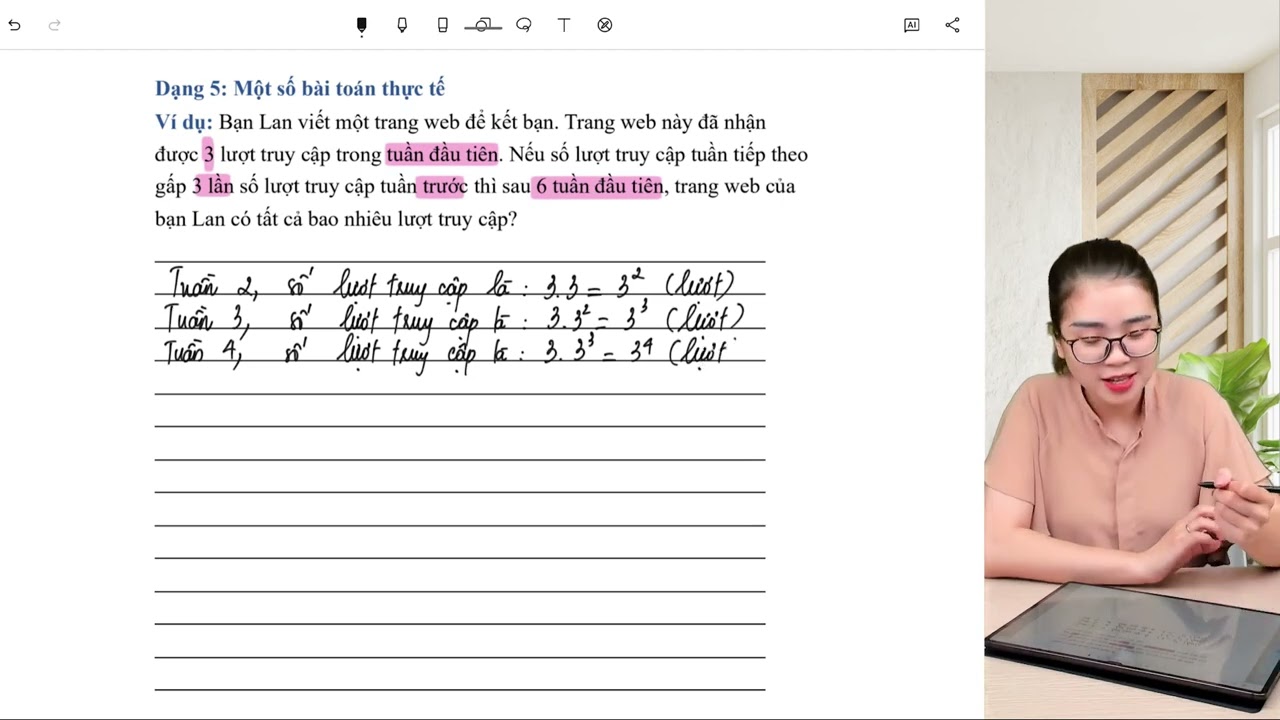 AI
T
Dạng 5: Một số bài toán thực tế
Ví dụ: Bạn Lan viết một trang web để kết bạn. Trang web này đã nhận
được 3 lượt truy cập trong tuần đầu tiên. Nếu số lượt truy cập tuần tiếp theo
gấp 3 lần số lượt truy cập tuần trước thì sau 6 tuần đầu tiên, trang web của
bạn Lan có tất cả bao nhiêu lượt truy cập?
Tuần 2, số lượt truy cập là : 3.3 = 3² (lượt)
Tuần 3, số lượt truy cập là : 3.3² = 3³ (lượt)
Tuần 4, số lượt truy cập là : 3.3³ = 3⁴ (lượt